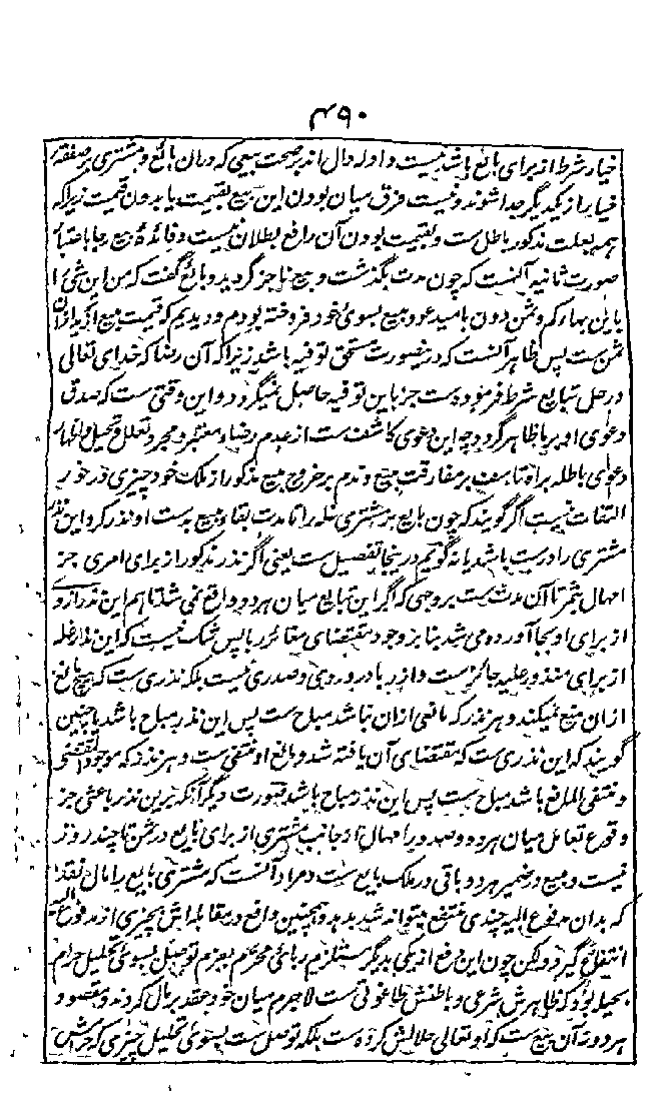 ۴۹۰
خیار شرط از برای بائع باشد نیست و اوله دال اند بر صحت بیعی که دران بائع و مشتری بر صفقه
خیار از یکدیگر جدا شوند و نیست فرق میان بودن این بیع بقیمت یا بدون قیمت زیرا که
همه بعلت مذکور باطل ست و بقیمت بودن آن رافع بطلان نیست و فائدهٔ بیع رجا باعتبار
صورت ثانیه آنست که چون مدت بگذشت و بیع ناجز گردید و بائع گفت که من این شئ را
باین بها کم و ثمن دون بامید عود مبیع بسوئ خود فروخته بودم و دیدیم که قیمت مبیع ازیدازان
ثمن ست پس ظاهر آنست که درینصورت مستحق توفیه باشد زیرا که آن رضا که خدای تعالی
در حل تبایع شرط فرموده ست جز باین توفیه حاصل نمیگردد و این وقتی ست که صدق
دعوی او بر ما ظاهر گردد چه این دعوی کاشف ست از عدم رضاء معتبر و مجرد تعلل و تحیل و
دعوای باطله براه تاسف بر مفارقت مبیع و ندم بر خروج مبیع مذکور از ملک خود چیزی در خور
التفات نیست اگر گویند که چون بایع بر مشتری غله را تا مدت بقاء مبیع بدست او نذر کرد این نذر
مشتری را درست باشد یا نه گویم درینجا تفصیل ست یعنی اگر نذر مذکور از برای امری جز
امهال ثمر تا آن مدت ست بروجهی که اگر این تبایع میان هر دو واقع نمی شد تا هم این نذر از وے
از برای او بجا آورده می شد بنا بر وجود مقتضای مغائر ربا پس شک نیست که این نذر غله
از برای منذور علیه جائز ست و از ربا در وردی و صدری نیست بلکه نذری ست که هیچ مانع
ازان منع نمیکند و هر نذر که مانعی ازان نباشد مباح ست پس این نذر مباح باشد یا چنین
گویند که این نذری ست که مقتضای آن یافته شد و مانع او منتفی ست و هر نذر که موجود المقتضی
و منتفی المانع باشد مباح ست پس این نذر مباح باشد صورت دیگر آنکه برین نذر باعثی جز
وقوع تعامل میان هر دو و صدور امهال از جانب مشتری از برای بایع در ثمن تا چند روز
نیست و مبیع در ضمیر هر دو باقی در ملک بایع ست و مراد آنست که مشتری بایع را مال نقد
که بدان مدفوع الیه چندی منتفع میتواند شد بدهد و همچنین دافع در مقابله اش بچیزی از مدفوع الیه
انتفاع گیرد و لیکن چون این دفع از یکی بدیگر مستلزم ربائ محرم بعزم توصل بسوئ تحلیل حرام
بحیله بود که ظاهرش شرعی و باطنش طاغوتی ست لاجرم میان خود عقد بر مال کردند و مقصود
هر دو نه آن بیع ست که او تعالی حلالش کرده ست بلکه توصل ست بسوئ تحلیل چیزی که حرامش